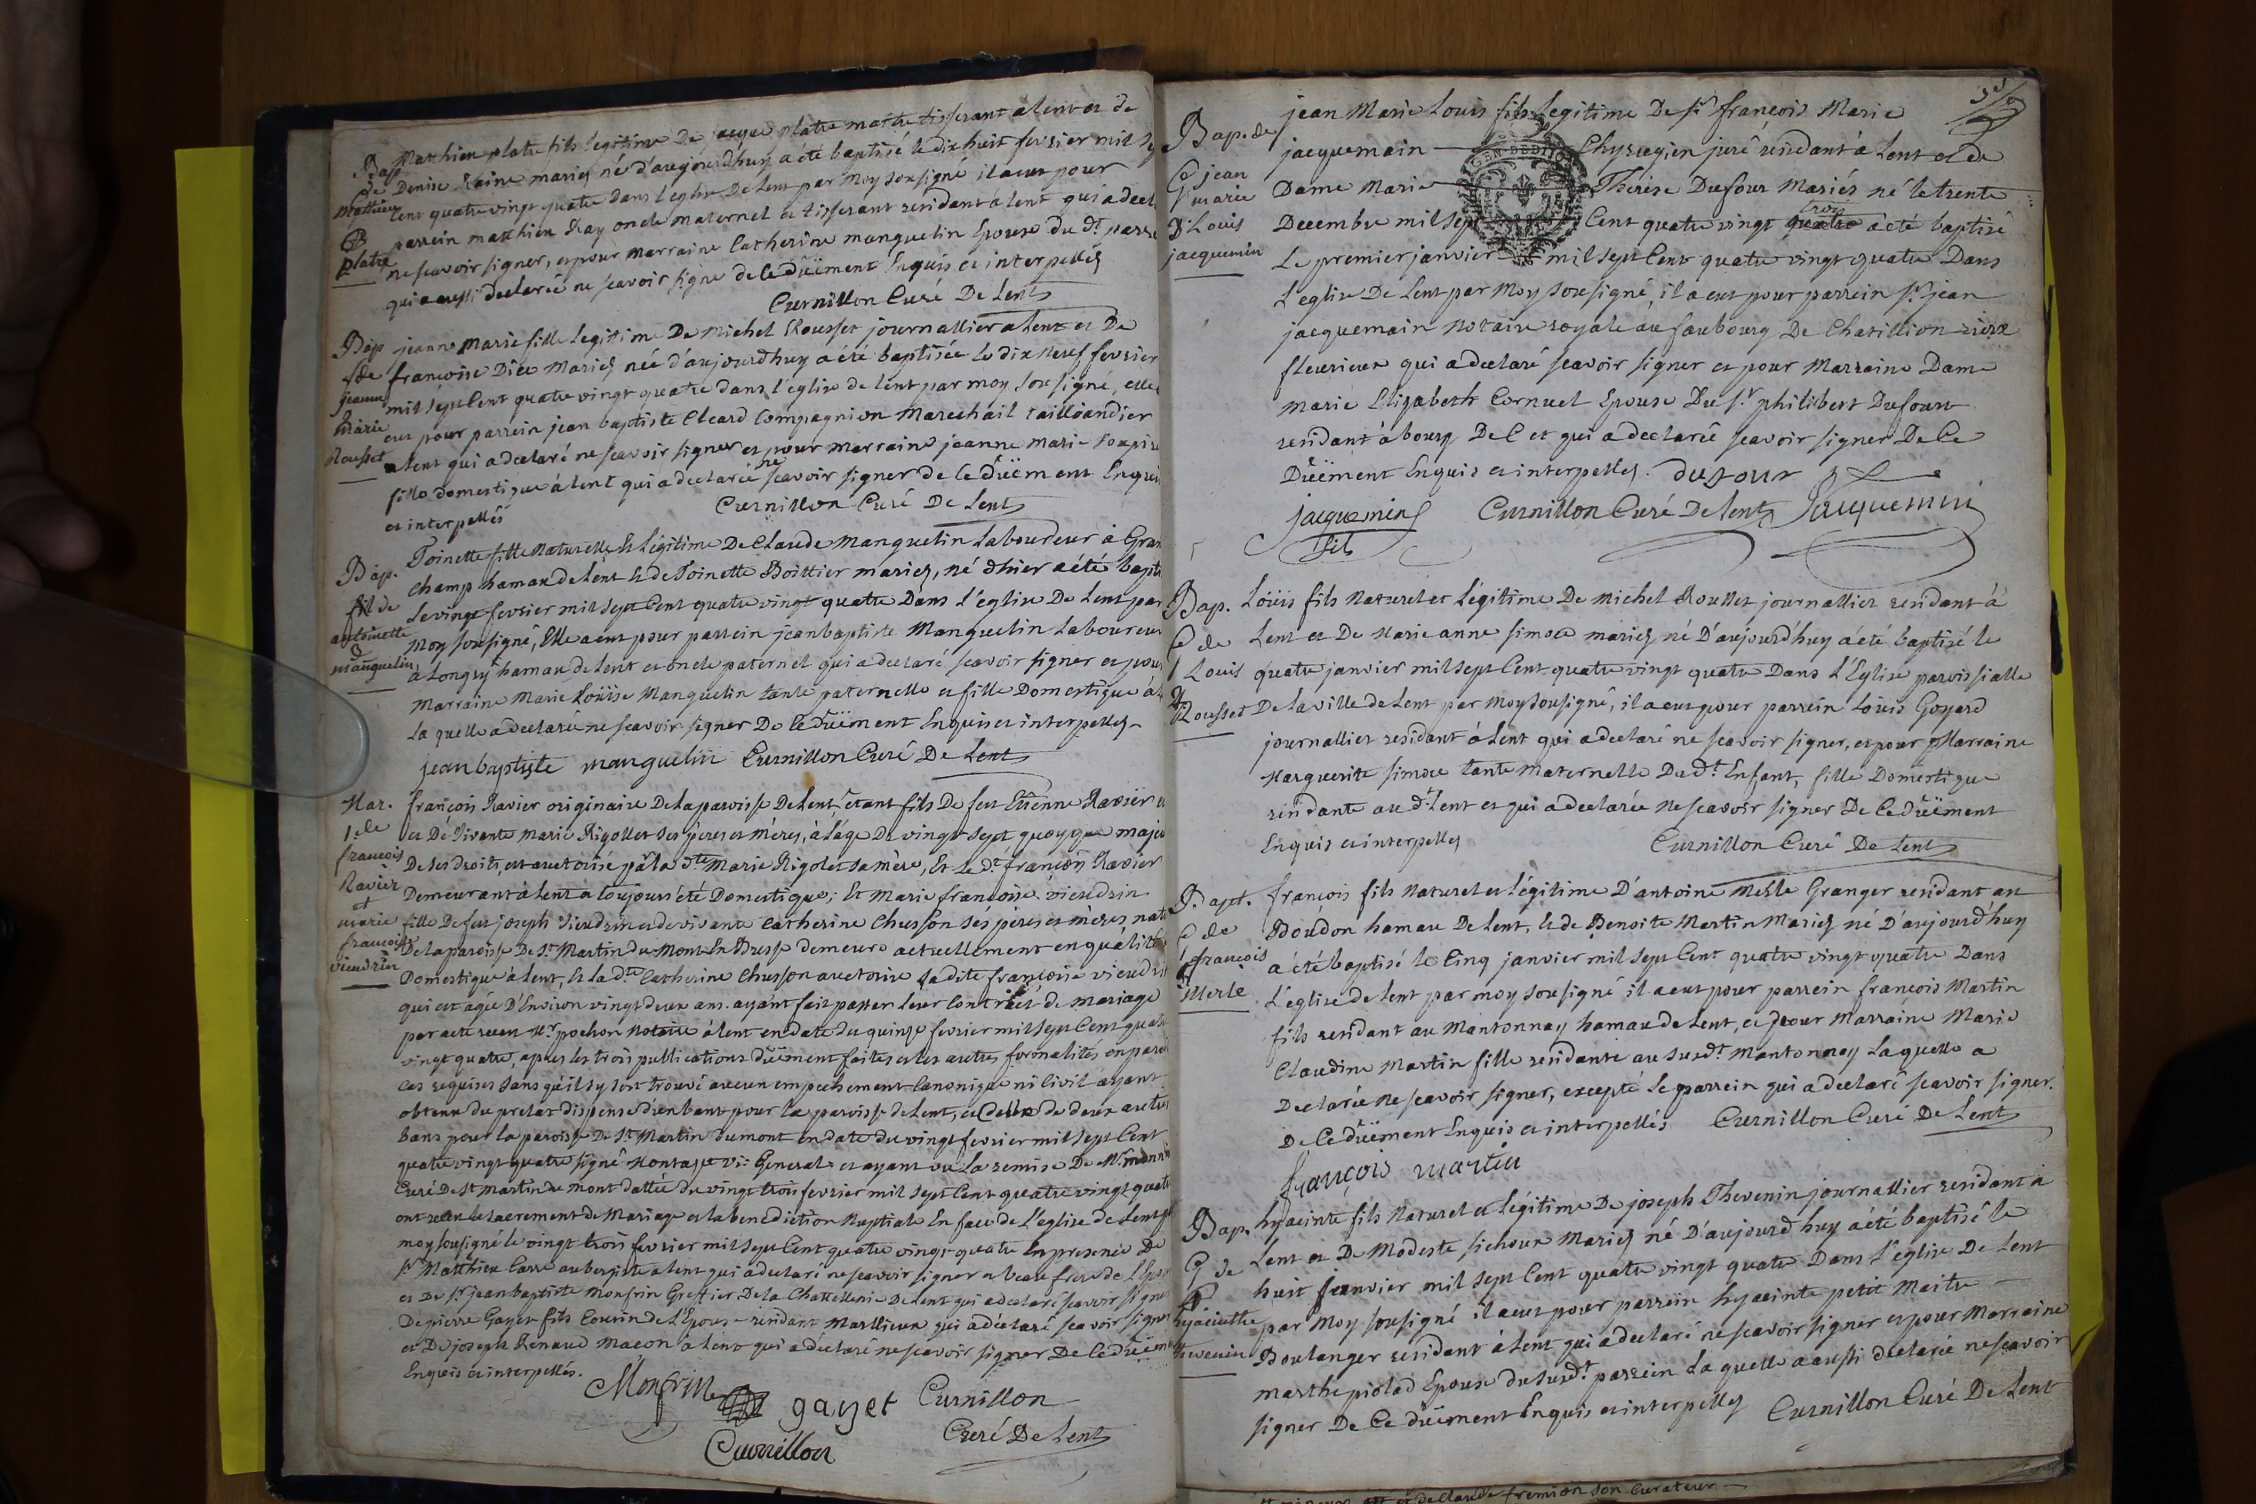 Bap
de
Matthieu
platre
Matthieu platre fils legitime De jacque platre maitre tisserant a lent et de
Denise Raine mariés né d'aujourdhuy a été baptisé le dix huit fevrier mil
cent quatre vingt quatre dans l'eglise De lent par moy sousigné il a eut pour
parrein matthieu Ray oncle maternel et tisserant residant à lent qui a decl
ne scavoir signer, et pour marraine Catherine manguelin Epouse du dt. parre
qui a aussi declarée ne scavoir signe de ce düement Enquis et interpellés
Curnillon Curé De Lent
Bap
de
jeanne
marie
Rousset
jeanne Marie fille legitime De Michel Rousset journallier a lent et De
francoise Diée Mariés née d'aujourdhuy a été baptisée le dix neuf fevrier
mil sept Cent quatre vingt quatre dans l'eglise de lent par moy sousigné, elle
eut pour parrein jean baptiste Cleard Compagnion Marechail taillandier
a lent qui a declaré ne scavoir signer et pour marraine jeanne marie
fille domestique à lent qui a declarée ne scavoir signer de ce düement Enquis
et interpellés
Curnillon Curé De Lent
Bap.
de
antoinette
manguelin
Toinette fille Naturelle et Légitime De Claude Manguelin Laboureur à Gran
champ hamau de lent et de Toinette Boittier mariés, né d'hier a été bapti
le vingt fevrier mil sept Cent quatre vingt quatre Dans l'eglise De Lent par
Moy sousigné, Elle a eut pour parrein jean baptiste Manguelin Laboureur
a Longry hamau de lent et oncle paternel qui a declaré scavoir signer et pour
Marraine Marie Loüise Manguelin tante paternelle et fille Domestique à
La quelle a declarée ne scavoir signer De Ce düement Enquis et interpellés
jean baptiste manguelin Curnillon Curé De Lent
Mar.
de
francois
Ravier
et
marie
francoise
vieudrin
françois Ravier originaire De la paroisse De Lent etant fils De feu Etienne Ravier
et De vivante Marie Rigollet ses peres et meres, à l'age De vingt sept quoy que majeu
De ses droits, est auctorisé par la dte. Marie Rigolet sa mère, Et Le dt. françois Ravier
Demeurant à Lent a toujours été Domestique; Et Marie françoise vieudrin
fille De feu joseph vieudrin et de vivante Catherine Chusson ses péres et méres nati
De la paroisse De St. Martin du Mont En Bresse demeure actuellement en qualité
Domestique à lent, et la dte. Catherine Chusson auctorise la dite francoise vieudri
qui est agée D'Environ vingt deux ans. ayant fait passer leur Contract de mariage
par acte receu Mr. pochon Notaire à lent en date du quinze fevrier mil sept Cent quatre
vingt quatre, apres les trois publications düement faites et les autres formalités en pareil
cas requises sans qu'il sy soit trouvé aucun empechement Canonique ni Civil ayant
obtenu du prelat dispense d'un bant pour la paroisse de Lent, et Celle de deux autres
bans pour la paroisse De St. Martin du mont en date du vingt fevrier mil sept Cent
quatre vingt quatre signé Montagu vi: General et ayant vu La remise De Mr.
Curé De St Martin du mont dattée du vingt trois fevrier mil sept Cent quatre vingt quatre
ont receu le sacrement de Mariage et la benediction Nuptiale En face De L'eglise de Lent
moy sousigné le vingt trois fevrier mil sept Cent quatre vingt quatre En presence De
sr. Matthieu Carre aubergiste a lent qui a declaré ne scavoir signer et beau frere de l'Epou
et De sr. jean baptiste Monfrin Greffier De la Chattellenie De Lent qui a declaré scavoir signer
De pierre Gayet fils Cousin de L'Epouse residant Marllieux qui a declaré scavoir signer
et De joseph Renaud Macon à Lent qui a declaré ne scavoir signer De Ce düement
Enquis et interpellés.
Monfrin
gayet Curnillon
Curé De Lent
Curnillon
Bap. de
jean
marie
Louis
jacquemin
jean Marie Louis fils legitime De sr. françois Marie
jacquemain Chyrurgien juré residant à Lent et de
Dame Marie Thérèse Dufour Mariés né le trente
Decembre mil sept Cent quatre vingt trois quatre a été baptisé
Le premier janvier mil sept Cent quatre vingt quatre Dans
L'eglise De Lent par Moy sousigné, il a eut pour parrein sr. jean
jacquemain Notaire royale au faubourg De Chatillion
fleurieux qui a declaré scavoir signer et pour Marraine Dame
Marie Elizabeth Cornuel Epouse Du sr. philibert Dufour
residant à bourg De C et qui a declarée scavoir signer De Ce
Düement Enquis et interpellés. dufour
jacquemin Curnillon Curé De Lent Jacquemin
fils
Bap.
de
Louis
Rousset
Loüis fils Naturel et Légitime De Michel Rousset journallier residant à
Lent et De Marie anne simoce mariés né D'aujourd'huy a été baptisé le
quatre janvier mil sept Cent quatre vingt quatre Dans L'Eglise paroissialle
De la ville de Lent par Moy sousigné, il a eut pour parrein Loüis Goyard
journallier residant à Lent qui a declaré ne scavoir signer, et pour Marraine
Marguerite simoce tante Maternelle Du dt. Enfant, fille Domestique
residante au dt. Lent et qui a declarée ne scavoir signer De Ce düement
Enquis et interpellés Curnillon Curé De Lent
Bapt.
de
françois
Merle
françois fils Naturel et Légitime D'antoine Merle Granger residant au
Boudon hamau De Lent, et de Benoite Martin Mariés né D'aujourd'huy
a été baptisé le Cinq janvier mil sept Cent quatre vingt quatre Dans
L'eglise de Lent par moy sousigné il a eut pour parrein françois Martin
fils residant au Mantonnay hamau de Lent, et pour Marraine Marie
Claudine Martin fille residante au susdt. Mantonnay Laquelle a
Declarée ne scavoir signer, excepté Le parrein qui a declaré scavoir signer.
De Ce düement Enquis et interpellés Curnillon Curé De Lent
françois martin
Bap.
de
hyacinthe
thevenin
hyacinte fils Naturel et Légitime De joseph Thevenin journallier residant à
Lent et De Modeste sichoux Mariés né D'aujourd'huy a été baptisé le
huit janvier mil sept Cent quatre vingt quatre Dans l'eglise De Lent
par Moy sousigné il a eut pour parrein hyacinte petit Maitre
Boulanger residant à Lent qui a declaré ne scavoir signer et pour Marraine
marthe piolad Epouse du susdt. parrein La quelle a aussi declarée ne scavoir
signer De Ce düement Enquis et interpellés Curnillon Curé De Lent
et de Claude fremion son Curateur